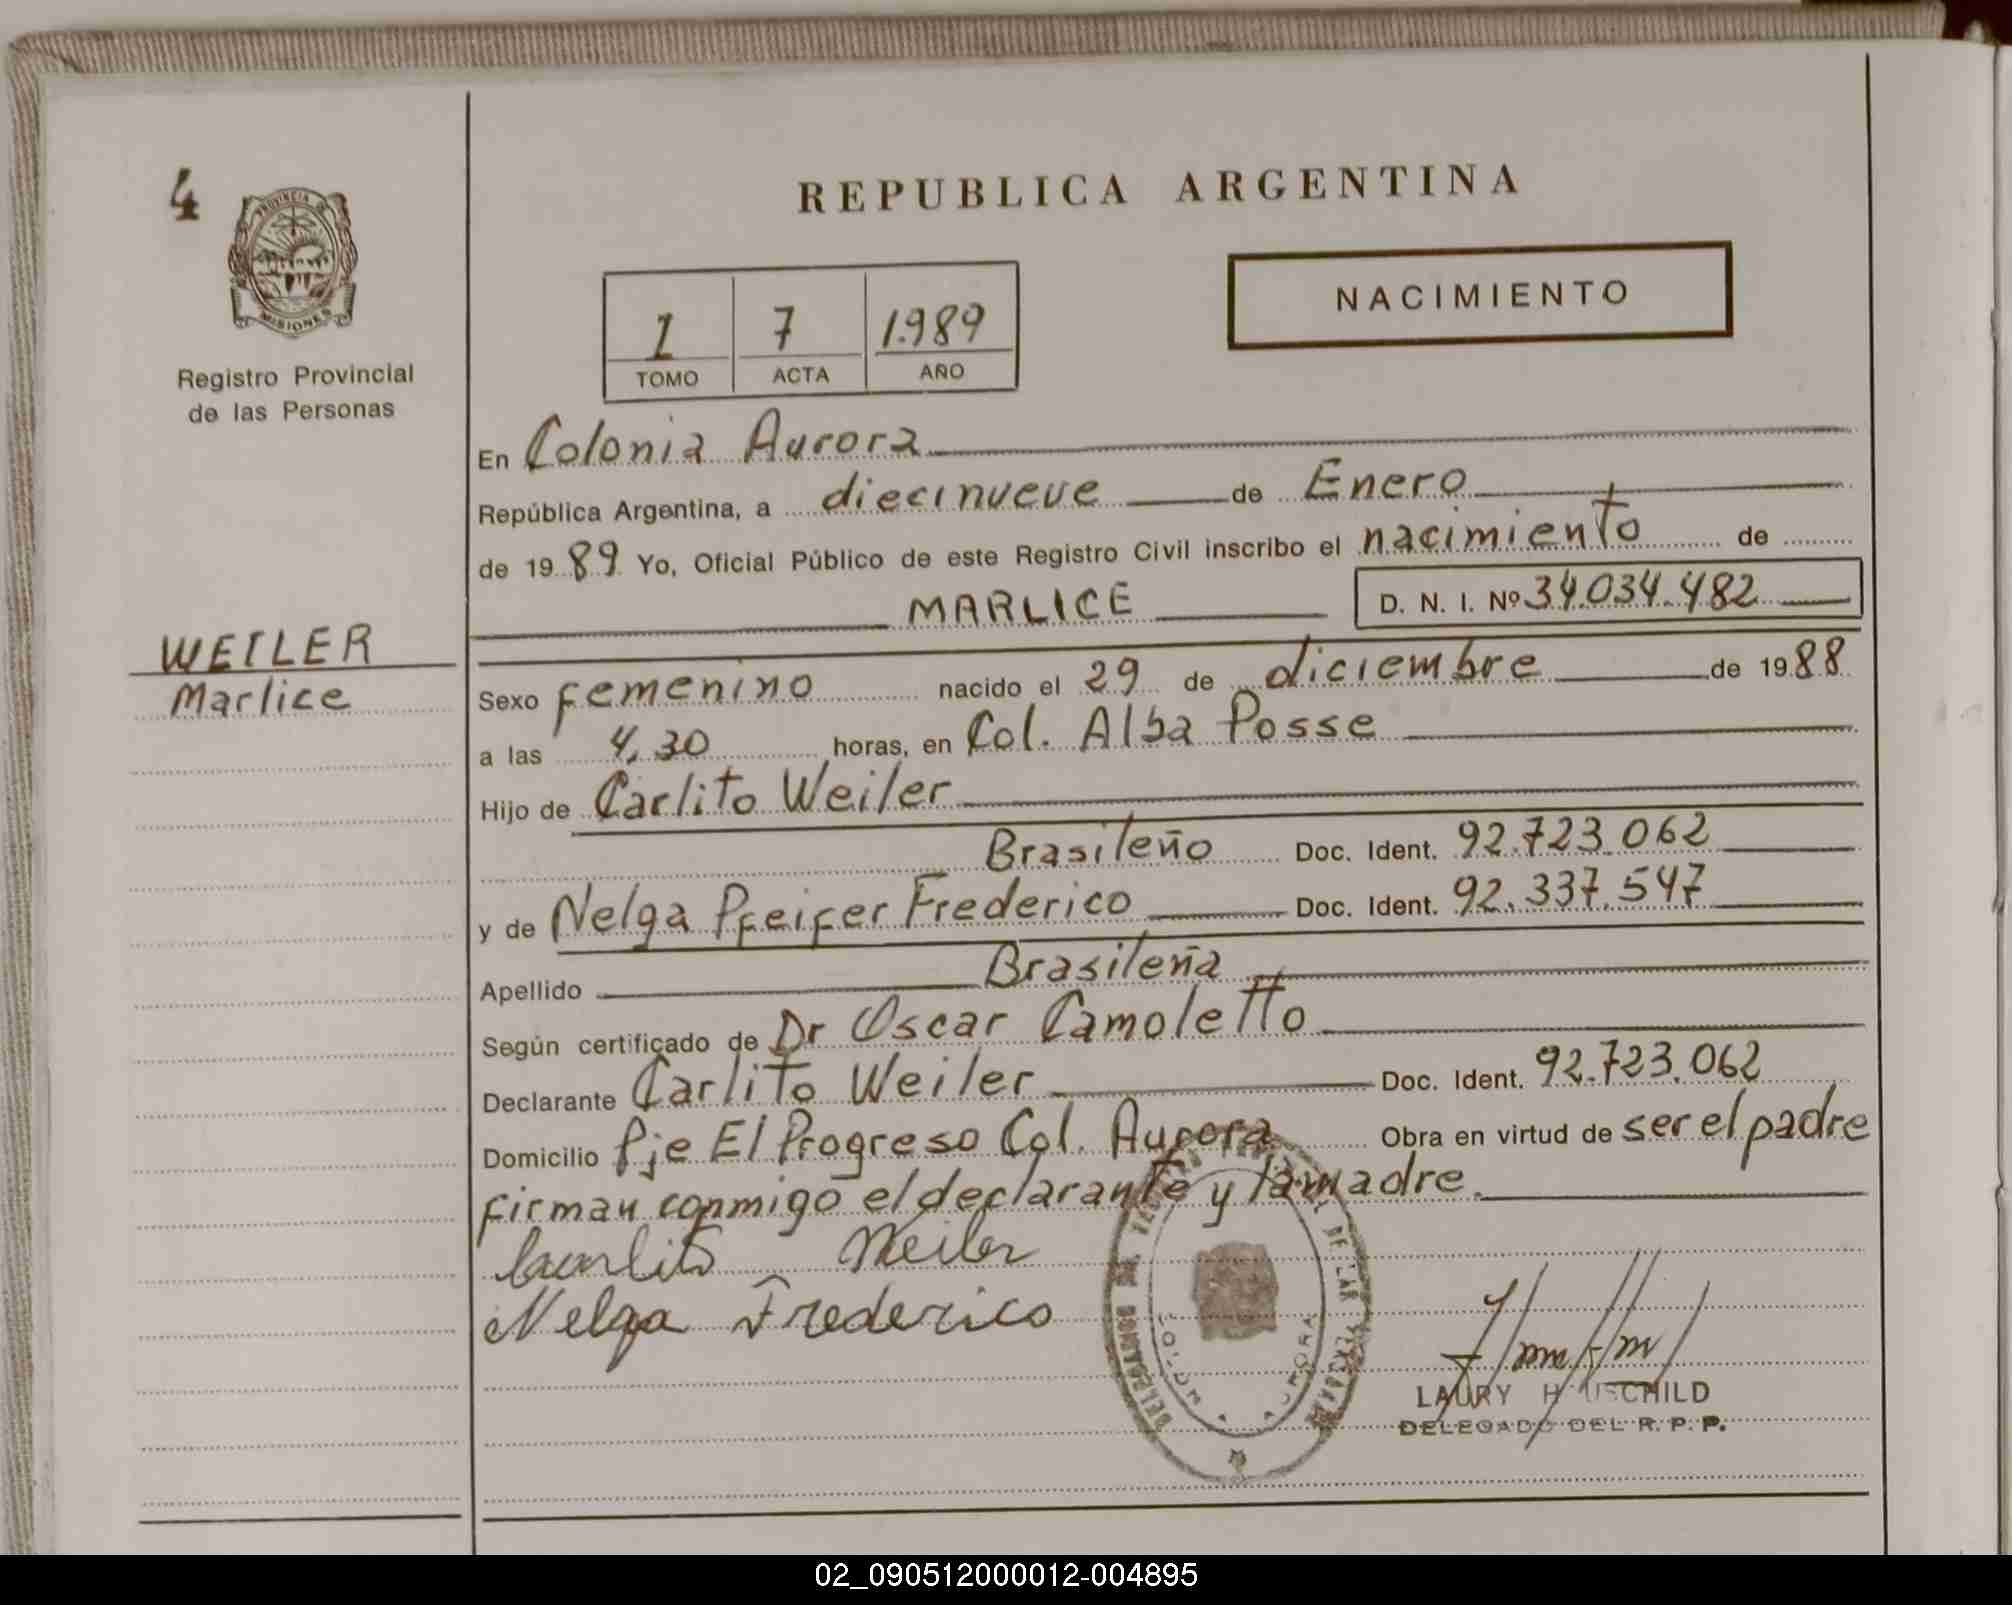 4
PROVINCIA DE
MISIONES
Registro Provincial
de las Personas
WEILER
Marlice
REPUBLICA ARGENTINA
1 7 1.989
TOMO ACTA AÑO
NACIMIENTO
En Colonia Aurora
República Argentina, a diecinueve de Enero
de 1989 Yo, Oficial Público de este Registro Civil inscribo el nacimiento de
MARLICE D. N. I. Nº 34.034.482
Sexo femenino nacido el 29 de diciembre de 1988
a las 4,30 horas, en Col. Alba Posse
Hijo de Carlito Weiler
Brasileño Doc. Ident. 92.723.062
y de Nelga Pfeifer Frederico Doc. Ident. 92.337.547
Apellido Brasileña
Según certificado de Dr Oscar Camoletto
Declarante Carlito Weiler Doc. Ident. 92.723.062
Domicilio Pje El Progreso Col. Aurora Obra en virtud de ser el padre
firman conmigo el declarante y la madre.
Carlito Weiler
Nelga Frederico
LAURY HAUSCHILD
DELEGADO DEL R. P. P.
02_090512000012-004895